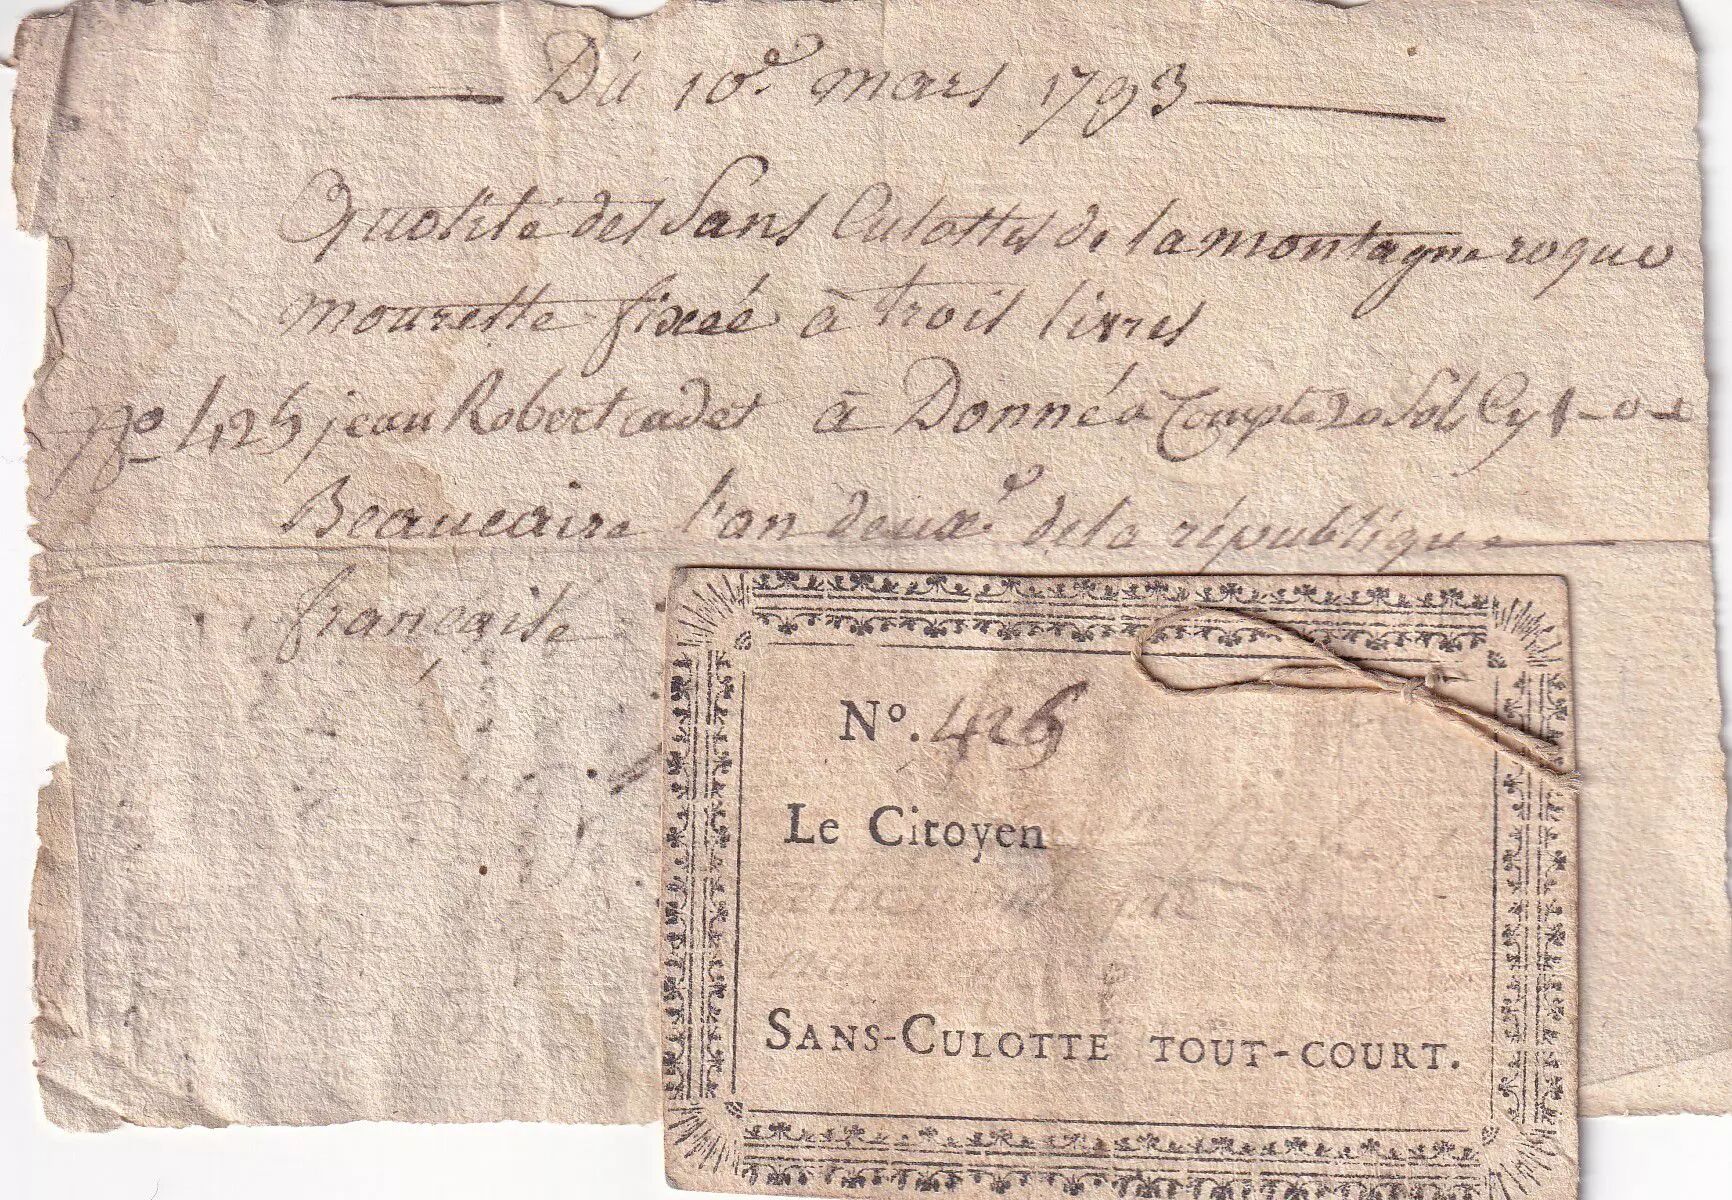 Du 10e. mars 1793
Qualité des Sans Culottes de la montagne roque
mourette fixeé à trois livres
No 425 jean Robert cadet à Donné a Compte
Beaucaire l'an deuxe. de la république
francaise
No. 425
Le Citoyen
SANS-CULOTTE TOUT-COURT.